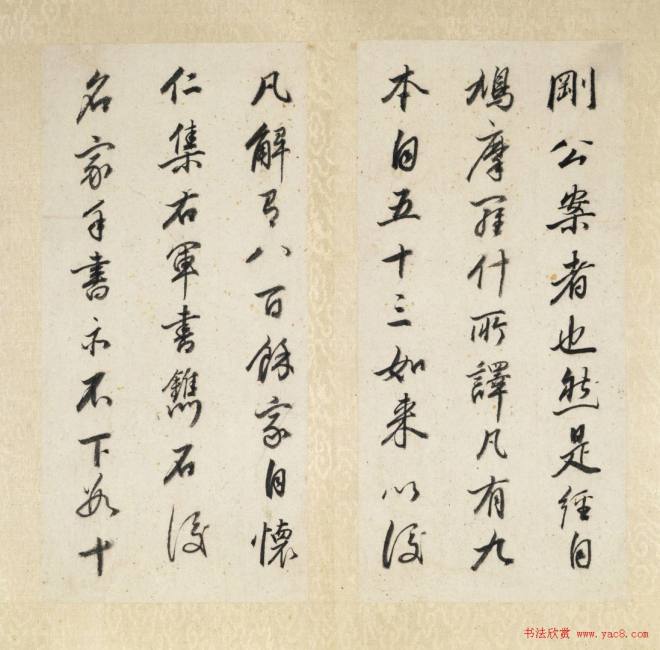 剛公案者也然是經自
鳩摩羅什所譯凡有九
本自五十三如来以後
凡解有八百餘家自懷
仁集右軍書鐫石後
名家手書亦不下數十
书法欣赏 www.yac8.com